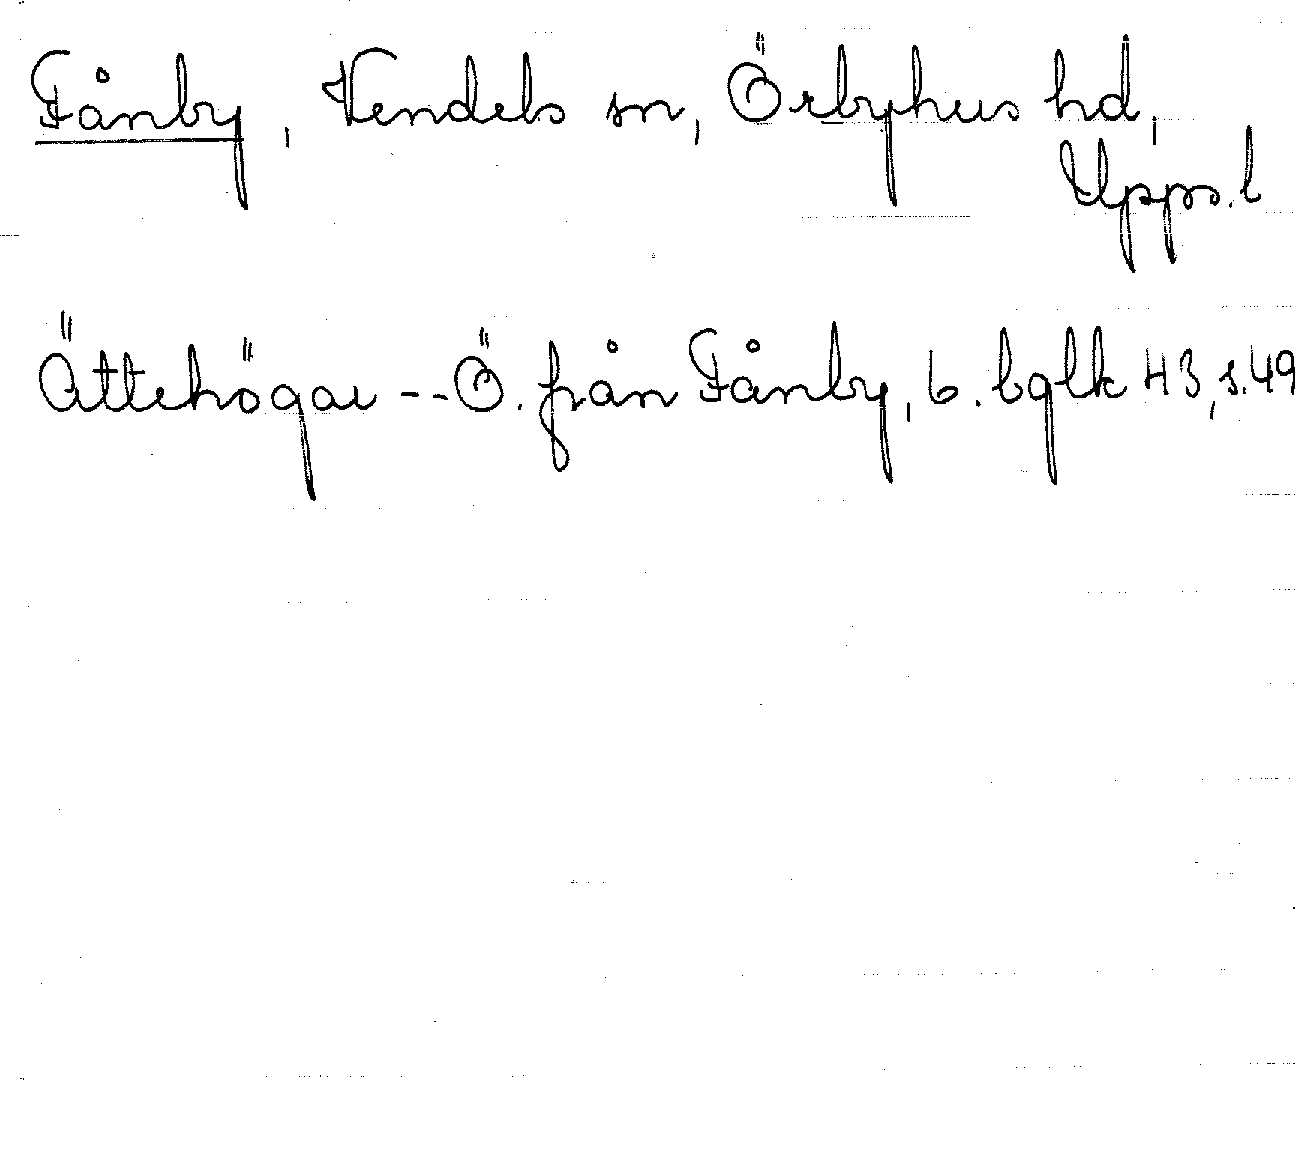 Fånby, Vendels sn, Örbyhus hd,
Upps. l
Ättehögar -- Ö. från Fånby, b. bglk 43, s. 49